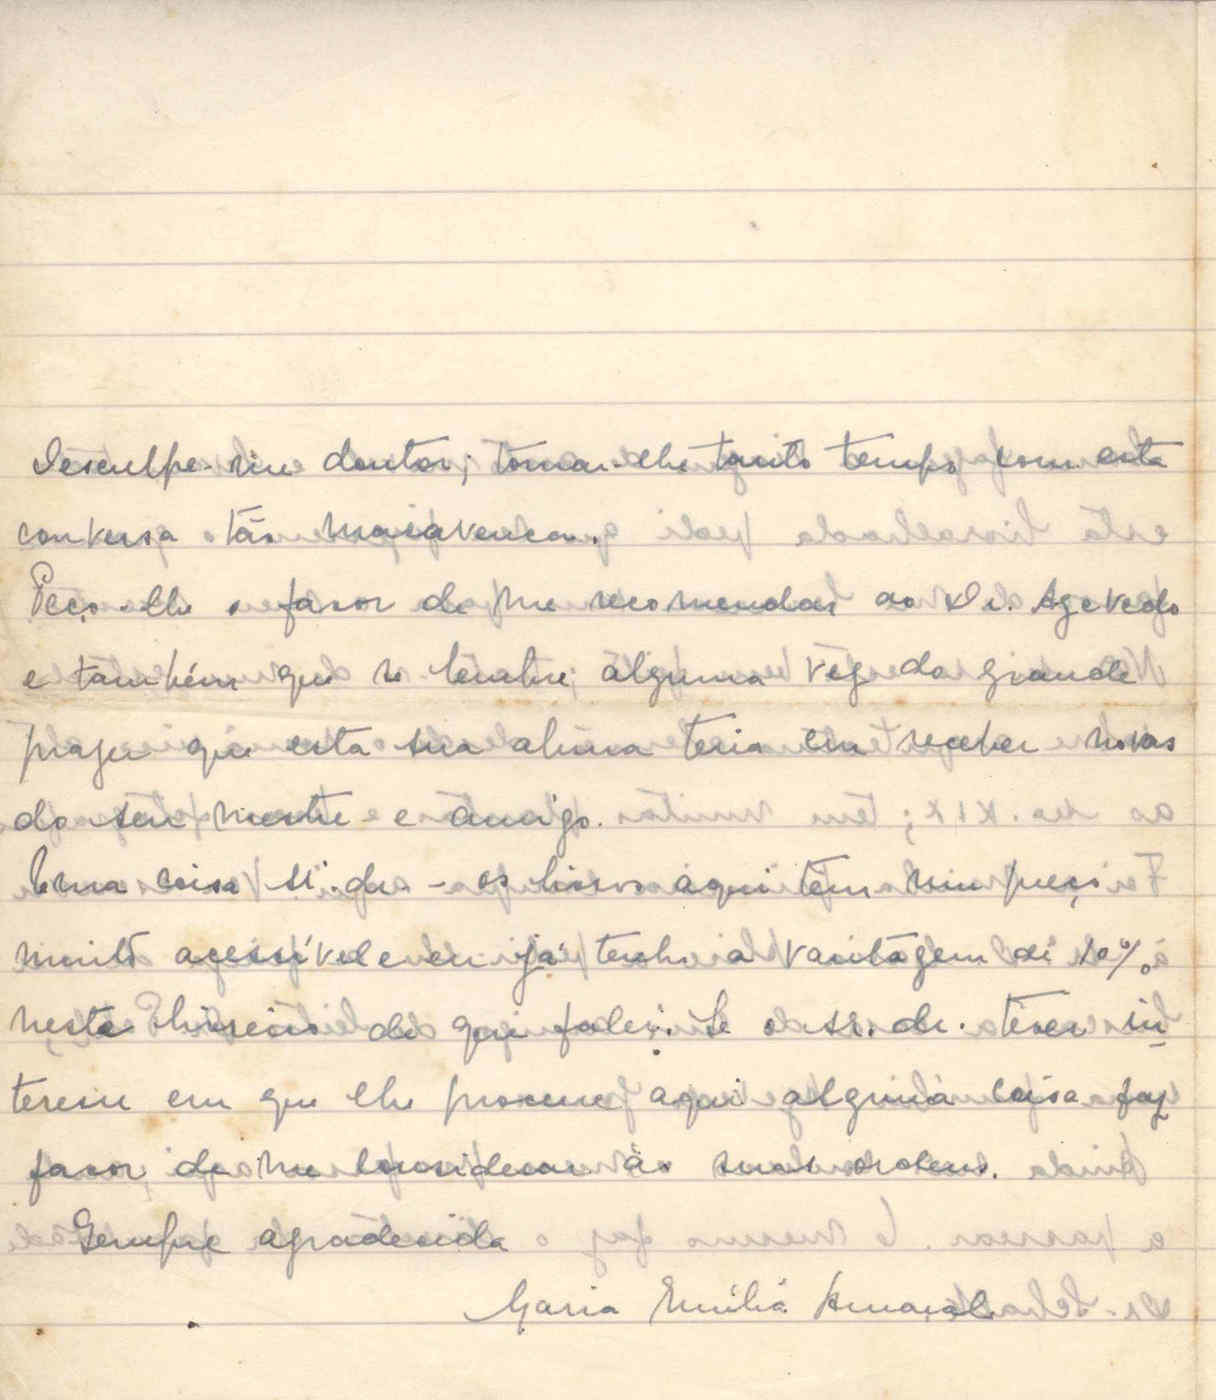 Desculpe-me doutor; tomar-lhe tanto tempo com esta
conversa tão
Peço-lhe o favor de me recomendar ao Dr. Azevedo
e também que se lembre, alguma vez do grande
prazer que esta sua aluna teria em receber novas
do seu mestre e amigo.
Uma coisa sr. dr. - os livros aqui tem um preço
muito acessível e eu já tenho a vantagem de 10%
nesta livraria de que falei. Se o sr. dr. tiver in
teresse em que lhe procure aqui alguma coisa faz
favor, de me considerar às suas ordens.
Sempre agradecida
Maria Emília Amaral